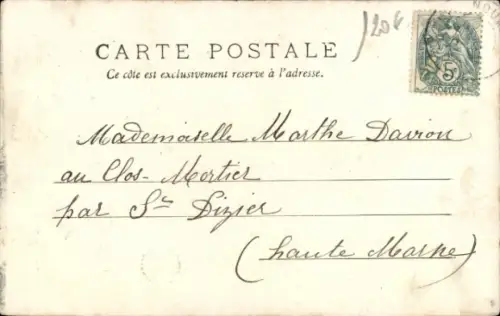 120 €
CARTE POSTALE
Ce côté est exclusivement réservé à l'adresse.
5
POSTES
Mademoiselle Marthe Davion
au Clos-Mortier
par St Dizier
(haute Marne)